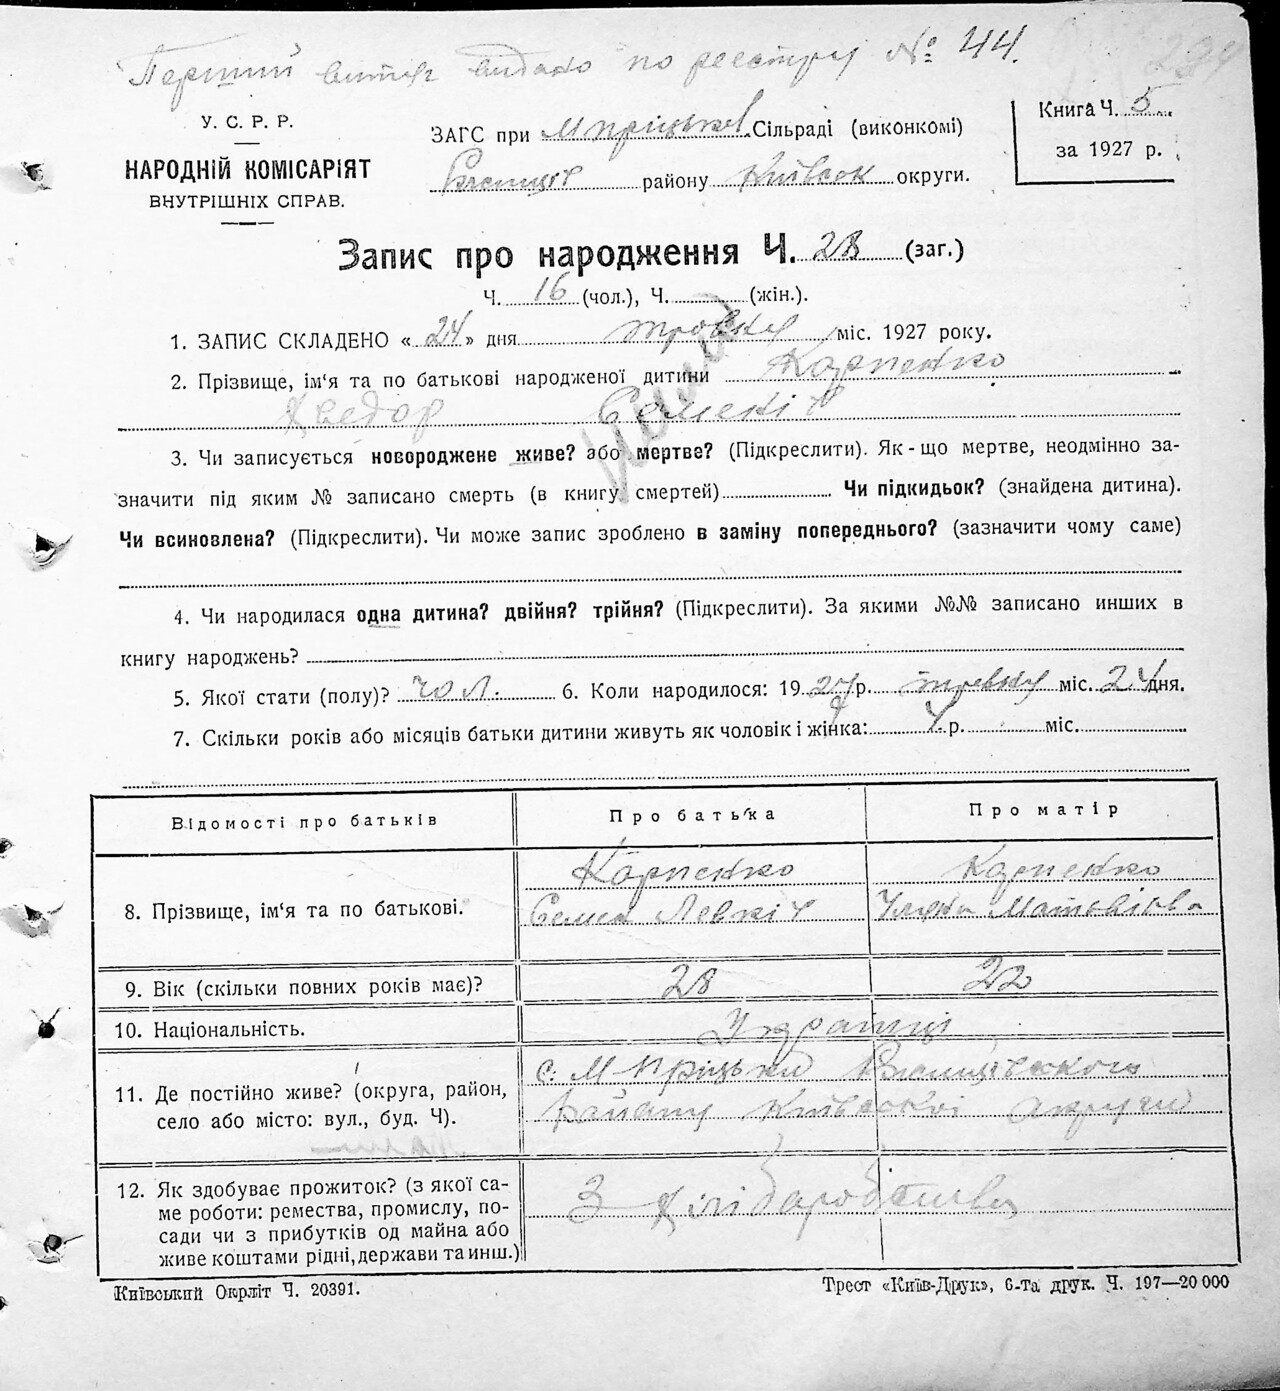 Перший витяг видано по реестру № 44.
У. С. Р. Р.
НАРОДНІЙ КОМІСАРІЯТ
ВНУТРІШНІХ СПРАВ.
ЗАГС при Сільраді (виконкомі)
району Київськ округи.
Книга Ч. 5
за 1927 р.
Запис про народження Ч. 28 (заг.)
Ч. 16 (чол.), Ч. (жін.).
1. ЗАПИС СКЛАДЕНО « 24 » дня травня міс. 1927 року.
2. Прізвище, ім'я та по батькові народженої дитини Карпенко
Хведор Семенів
3. Чи записується новороджене живе? або мертве? (Підкреслити). Як-що мертве, неодмінно за-
значити під яким № записано смерть (в книгу смертей) Чи підкидьок? (знайдена дитина).
Чи всиновлена? (Підкреслити). Чи може запис зроблено в заміну попереднього? (зазначити чому саме)
4. Чи народилася одна дитина? двійня? трійня? (Підкреслити). За якими №№ записано инших в
книгу народжень?
5. Якої стати (полу)? чол. 6. Коли народилося: 1927 р. травня міс. 24 дня.
7. Скільки років або місяців батьки дитини живуть як чоловік і жінка: 4 р. міс.
Відомості про батьків Про батька Про матір
8. Прізвище, ім'я та по батькові. Карпенко Карпенко
Семен Левкіч Уляна Матвіівна
9. Вік (скільки повних років має)? 28 22
10. Національність. Українці
11. Де постійно живе? (округа, район,
село або місто: вул., буд. Ч).
с. району Київської округи
12. Як здобуває прожиток? (з якої са-
ме роботи: ремества, промислу, по-
сади чи з прибутків од майна або
живе коштами рідні, держави та инш.)
З хліборобства
Київський Окрліт Ч. 20391.
Трест «Київ-Друк», 6-та друк. Ч. 197—20 000